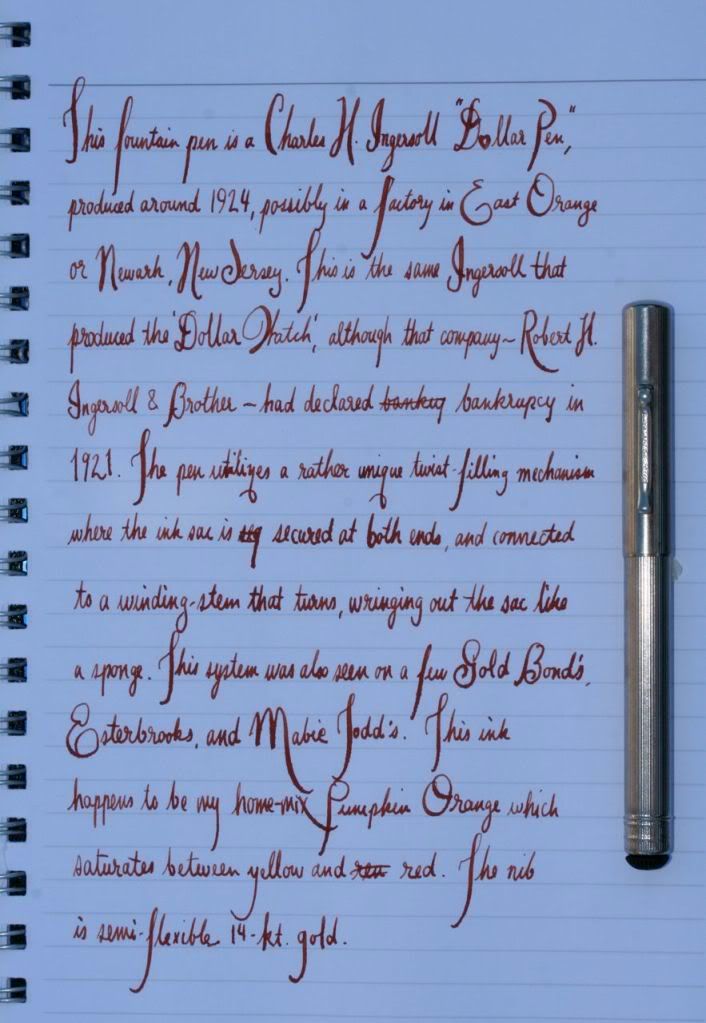 This fountain pen is a Charles H. Ingersoll "Dollar Pen",
produced around 1924, possibly in a factory in East Orange
or Newark, New Jersey. This is the same Ingersoll that
produced the 'Dollar Watch', although that company ~ Robert H.
Ingersoll & Brother ~ had declared bankrupcy in
1921. The pen utilizes a rather unique twist-filling mechanism
where the ink sac is secured at both ends, and connected
to a winding-stem that turns, wringing out the sac like
a sponge. This system was also seen on a few Gold Bond's,
Esterbrooks, and Mabie Todd's. This ink
happens to be my home-mix Pumpkin Orange which
saturates between yellow and red. The nib
is semi-flexible 14-kt. gold.